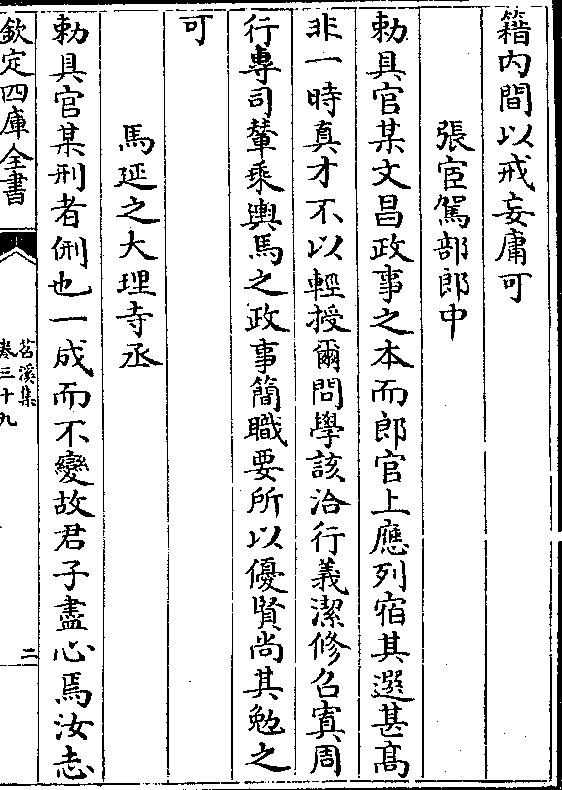 籍内間以戒妄庸可
張宦駕部郎中
勅具官某文昌政事之本而郎官上應列宿其選甚髙
非一時真才不以輕授爾問學該洽行義潔修召寘周
行專司輦乘輿馬之政事簡職要所以優賢尚其勉之
可
馬延之大理寺丞
勅具官某刑者侀也一成而不變故君子盡心焉汝志
欽定四庫全書
苕溪集
卷三十九
二